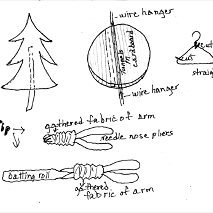 wire hanger
tunnels
cardboard
cut
cut
wire hanger
straigh
gathered fabric of arm
Tip
needle nose pliers
batting roll
gathered
fabric of arm